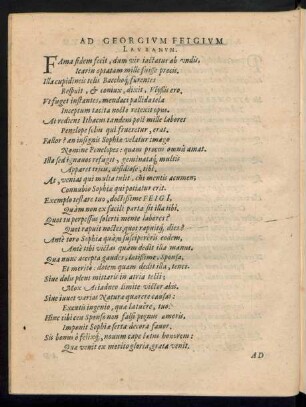 AD GEORGIVM FEIGIVM
LAVBANVM.
FAma fidem fecit, dum vir iactatur ab vndis,
Icarin optatam mille fuisse procis.
Illa cupidineis telis Bacchoq́; furentes
Respuit, & coniux, dixit, Vlyssis ero.
Vt fuget instantes, mendax pallida tela
Inceptum tacita nocte retexit opus.
At rediens Ithacem tandem post mille labores
Penelope solus qui frueretur, erat.
Fallor? an insignis Sophiæ velatur imago
Nomine Penelopes: quam procus omnis amat.
Ista sed ignauos refugit, geminatq́; multis
Apparet trux, assiduisq́;, tibi.
At, veniat qui multa tulit, cui mentis acumen;
Connubio Sophiæ qui patiatur erit.
Exemplo testare tuo, doctissime FEIGI,
Quàm non ex facili parta sit illa tibi.
Quot tu perpessus solerti mente labores?
Quot rapuit noctes, quot rapuitq́; dies?
Ante toro Sophiæ quàm susciperéris eodem,
Ante tibi victas quàm dedit illa manus.
Qua nunc accepta gaudes, doctissime, Sponsa,
Et meritò: dotem quam dedit illa, tenes.
Siue dolo plenus mittaris in atria telis:
Mox Aciadum limite victor abis.
Siue iuuet varias Naturæ quærere causas:
Exenti ingenio, quæ latuêre, tuo.
Hinc tibi ceu Sponso non falsi pignus amoris,
Imponit Sophiæ serta decora fauor.
Sis bonus ô felixq́;, nouum cape lætus honorem:
Qua venit ex merito gloria, grata venit.
AD